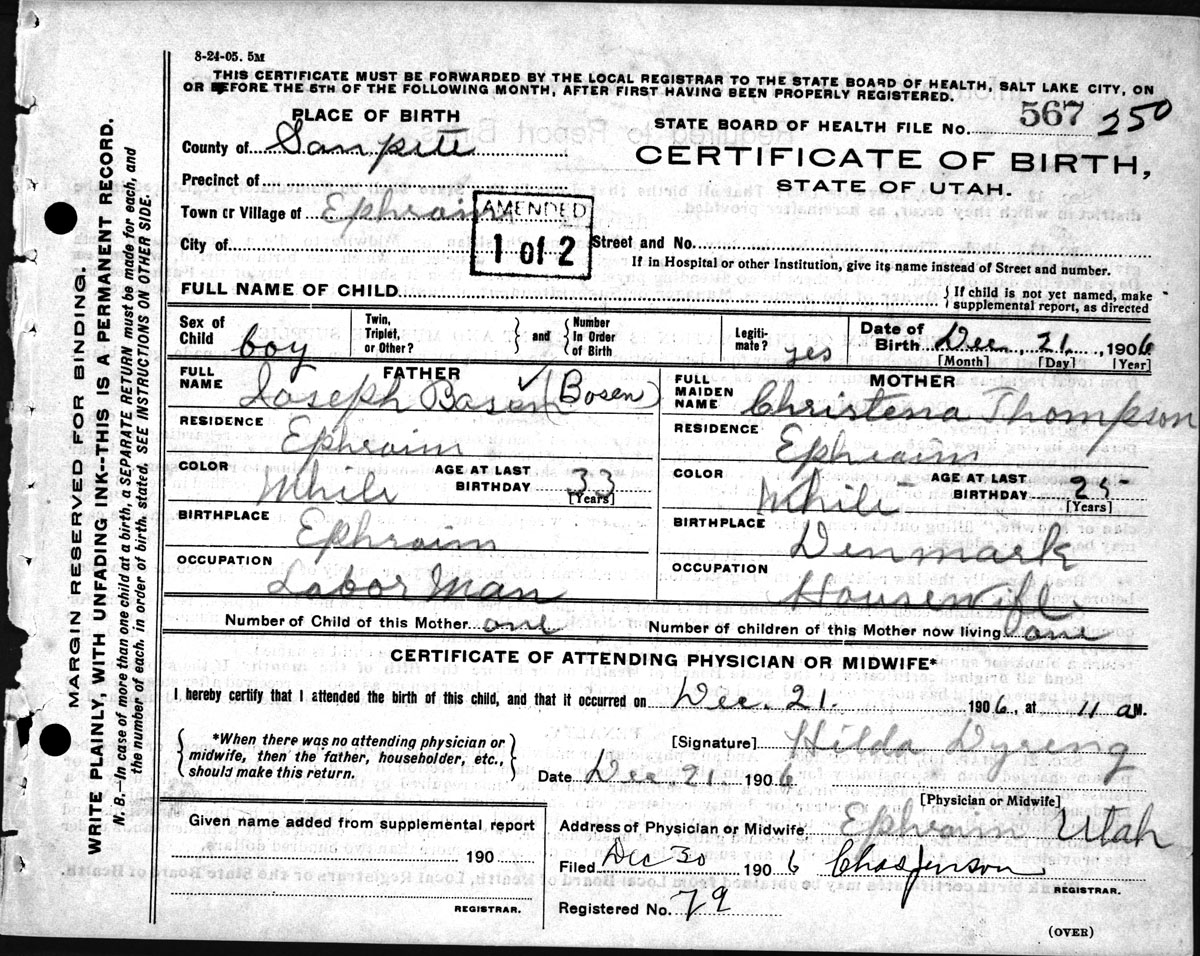 8-24-05. 5M
THIS CERTIFICATE MUST BE FORWARDED BY THE LOCAL REGISTRAR TO THE STATE BOARD OF HEALTH, SALT LAKE CITY, ON
OR BEFORE THE 5TH OF THE FOLLOWING MONTH, AFTER FIRST HAVING BEEN PROPERLY REGISTERED.
PLACE OF BIRTH
STATE BOARD OF HEALTH FILE No. 567 250
County of Sanpete
CERTIFICATE OF BIRTH,
STATE OF UTAH.
Precinct of
Town or Village of Ephraim
AMENDED
1 of 2
City of
Street and No.
If in Hospital or other Institution, give its name instead of Street and number.
FULL NAME OF CHILD
{ If child is not yet named, make
supplemental report, as directed
Sex of Child boy
Twin, Triplet, or Other? } and { Number In Order of Birth
Legiti-mate? yes
Date of Birth Dec. 21, 1906
[Month] [Day] [Year]
FATHER
FULL NAME Joseph Basen ✓ (Bosen)
RESIDENCE Ephraim
COLOR White
AGE AT LAST BIRTHDAY 33
[Years]
BIRTHPLACE Ephraim
OCCUPATION Labor Man
MOTHER
FULL MAIDEN NAME Christena Thompson
RESIDENCE Ephraim
COLOR White
AGE AT LAST BIRTHDAY 25
[Years]
BIRTHPLACE Denmark
OCCUPATION Housewife
Number of Child of this Mother one
Number of children of this Mother now living one
CERTIFICATE OF ATTENDING PHYSICIAN OR MIDWIFE*
I hereby certify that I attended the birth of this child, and that it occurred on Dec. 21. 1906, at 11 a M.
{ *When there was no attending physician or
midwife, then the father, householder, etc.,
should make this return. }
[Signature] Hilda Dyreng
Date Dec 21. 1906
[Physician or Midwife]
Given name added from supplemental report
190
REGISTRAR.
Address of Physician or Midwife Ephraim Utah
Filed Dec 30 1906 Chas Jenson
REGISTRAR.
Registered No. 79
(OVER)
MARGIN RESERVED FOR BINDING.
WRITE PLAINLY, WITH UNFADING INK--THIS IS A PERMANENT RECORD.
N. B.—In case of more than one child at a birth, a SEPARATE RETURN must be made for each, and
the number of each, in order of birth, stated. SEE INSTRUCTIONS ON OTHER SIDE.